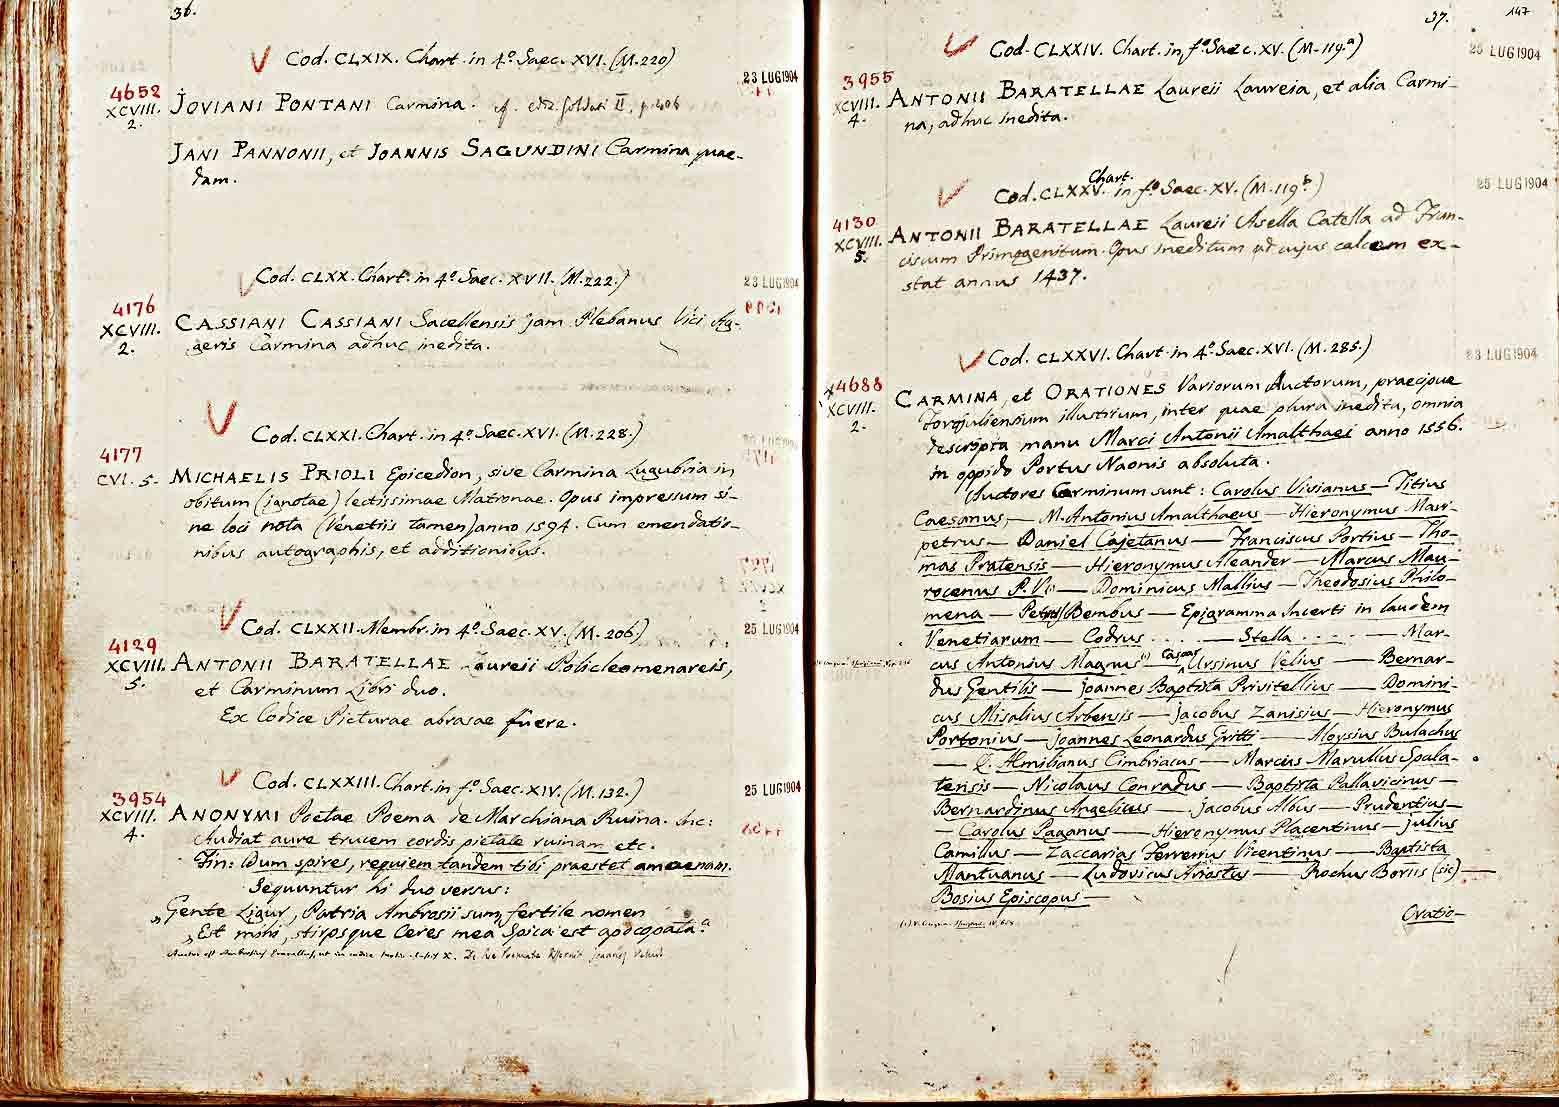 36.
Cod. CLXIX. Chart. in 4.º Saec. XVI. (M. 220)
23 LUG 1904
4652
XCVIII.
2.
JOVIANI PONTANI Carmina. cf. ediz. Soldati II, p. 406
JANI PANNONII, et JOANNIS SAGUNDINI Carmina quae-
dam.
Cod. CLXX. Chart. in 4.º Saec. XVII. (M. 222.)
23 LUG 1904
4176
XCVIII.
2.
CASSIANI CASSIANI Sacellensis jam Plebanus Vici Ag-
geris Carmina adhuc inedita.
Cod. CLXXI. Chart. in 4.º Saec. XVI. (M. 228.)
4177
CVI. 5.
MICHAELIS PRIOLI Epicedion, sive Carmina Lugubria in
obitum (ignotae) lectissimae Matronae. Opus impressum si-
ne loci nota (Venetiis tamen) anno 1594. Cum emendatio-
nibus autographis, et additionibus.
Cod. CLXXII. Membr. in 4.º Saec. XV. (M. 206)
25 LUG 1904
4129
XCVIII.
5.
ANTONII BARATELLAE Laureii Policleomenareis,
et Carminum Libri duo.
Ex Codice Picturae abrasae fuere.
Cod. CLXXIII. Chart. in fº. Saec. XIV. (M. 132.)
25 LUG 1904
3954
XCVIII.
4.
ANONYMI Poetae Poema de Marchiana Ruina. Inc:
Audiat aure trucem cordis pietate ruinam etc.
Fin: Dum spires, requiem tandem tibi praestet amoenam.
Sequuntur hi duo versus:
„Gente Ligur, Patria Ambrosii sum, fertile nomen
„Est mihi, stirpsque Ceres mea Spica est apocopata.ª
37.
147
Cod. CLXXIV. Chart. in fº. Saec. XV. (M. 119.ª)
25 LUG 1904
3955
XCVIII.
4.
ANTONII BARATELLAE Laureii Laureia, et alia Carmi-
na, adhuc inedita.
Chart.
Cod. CLXXV. in fº. Saec. XV. (M. 119.b)
25 LUG 1904
4130
XCVIII.
5.
ANTONII BARATELLAE Laureii Asella Catella ad Fran-
ciscum Primogenitum. Opus ineditum ad cujus calcem ex-
stat annus 1437.
Cod. CLXXVI. Chart. in 4.º Saec. XVI. (M. 285.)
23 LUG 1904
4688
XCVIII.
2.
CARMINA, et ORATIONES Variorum Auctorum, praecipue
Forojuliensium illustrium, inter quae plura inedita, omnia
descripta manu Marci Antonii Amalthaei anno 1556.
in oppido Portus Naonis absoluta.
Auctores Carminum sunt: Carolus Vivianus — Titius
Caesanus, — M. Antonius Amalthaeus — Hieronymus Mari-
petrus — Daniel Cajetanus — Franciscus Portius — Tho-
mas Pratensis — Hieronymus Aleander — Marcus Mau-
rocenus P. V. — Dominicus Mallius — Theodosius Philo-
mena — Petrus Bembus — Epigramma Incerti in laudem
Venetiarum — Codrus . . . — Stella . . . . — Mar-
cus Antonius Magnus(1) — Caspar Ursinus Velius — Bernar-
dus Gentilis — Joannes Baptista Privitellius — Domini-
cus Misalius Arbensis — Jacobus Zanisius — Hieronymus
Portonius — Joannes Leonardus Gritti — Aloysius Bulachus
— Q. Aemilianus Cimbriacus — Marcus Marullus Spala-
tensis — Nicolaus Conradus — Baptista Pallavicinus —
Bernardinus Angelicus — Jacobus Albius — Prudentius —
— Carolus Paganus — Hieronymus Placentinus — Julius
Camillus — Zaccarias Ferrerius Vicentinus — Baptista
Mantuanus — Ludovicus Ariostus — Rochus Boriis (sic) —
Bosius Episcopus —
Oratio-